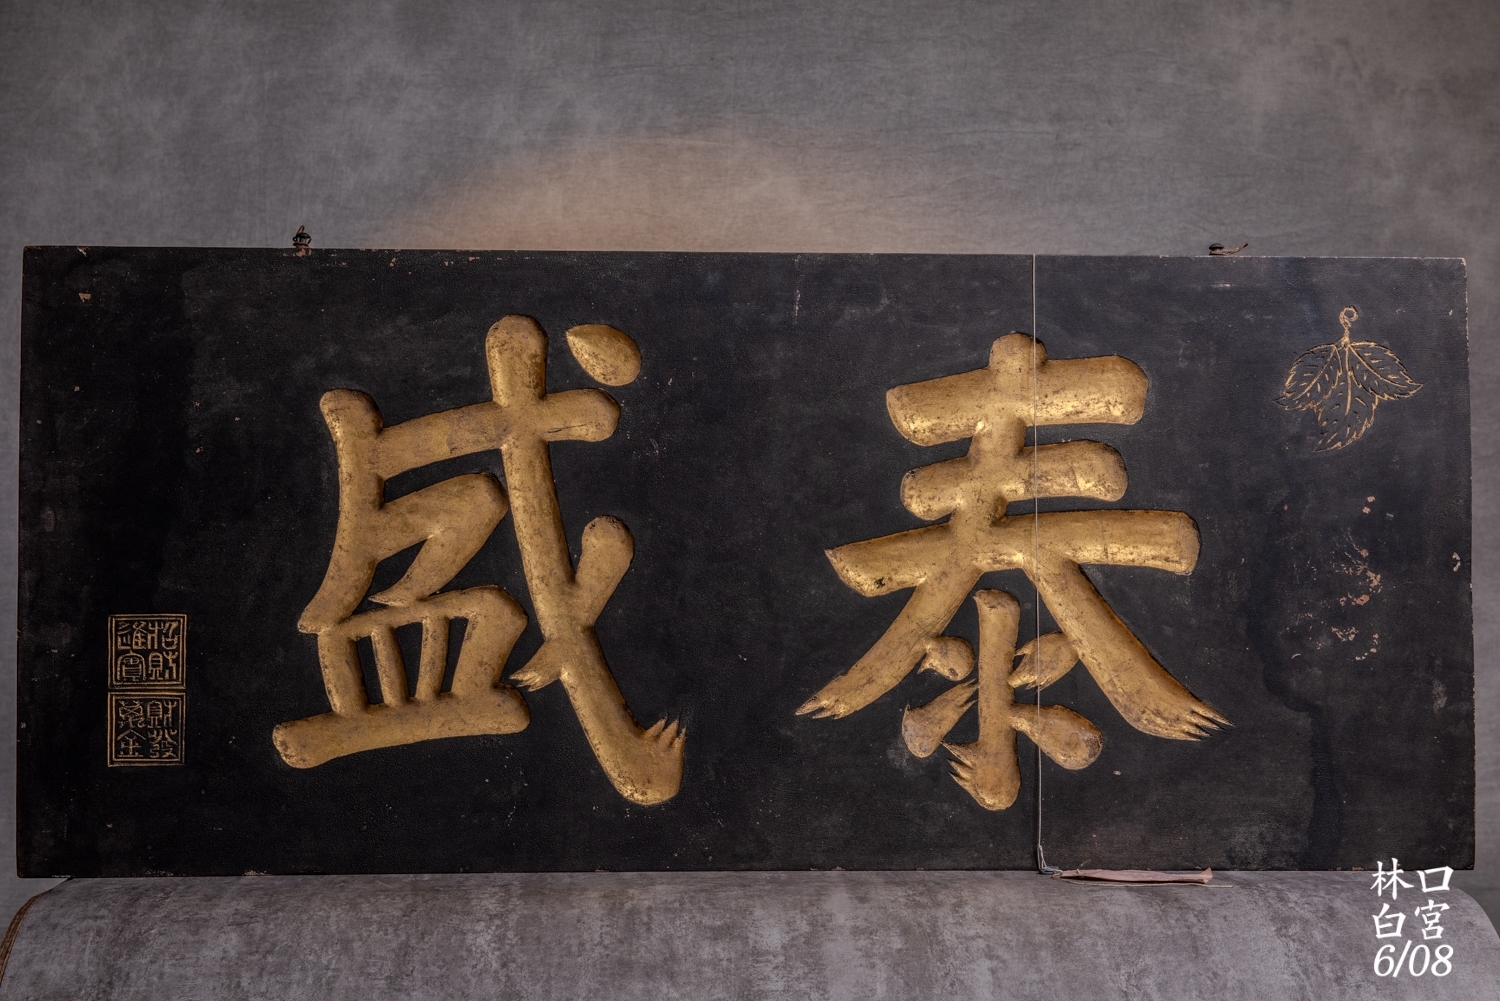 泰盛
招財進寶
財發萬金
林口
白宮
6/08